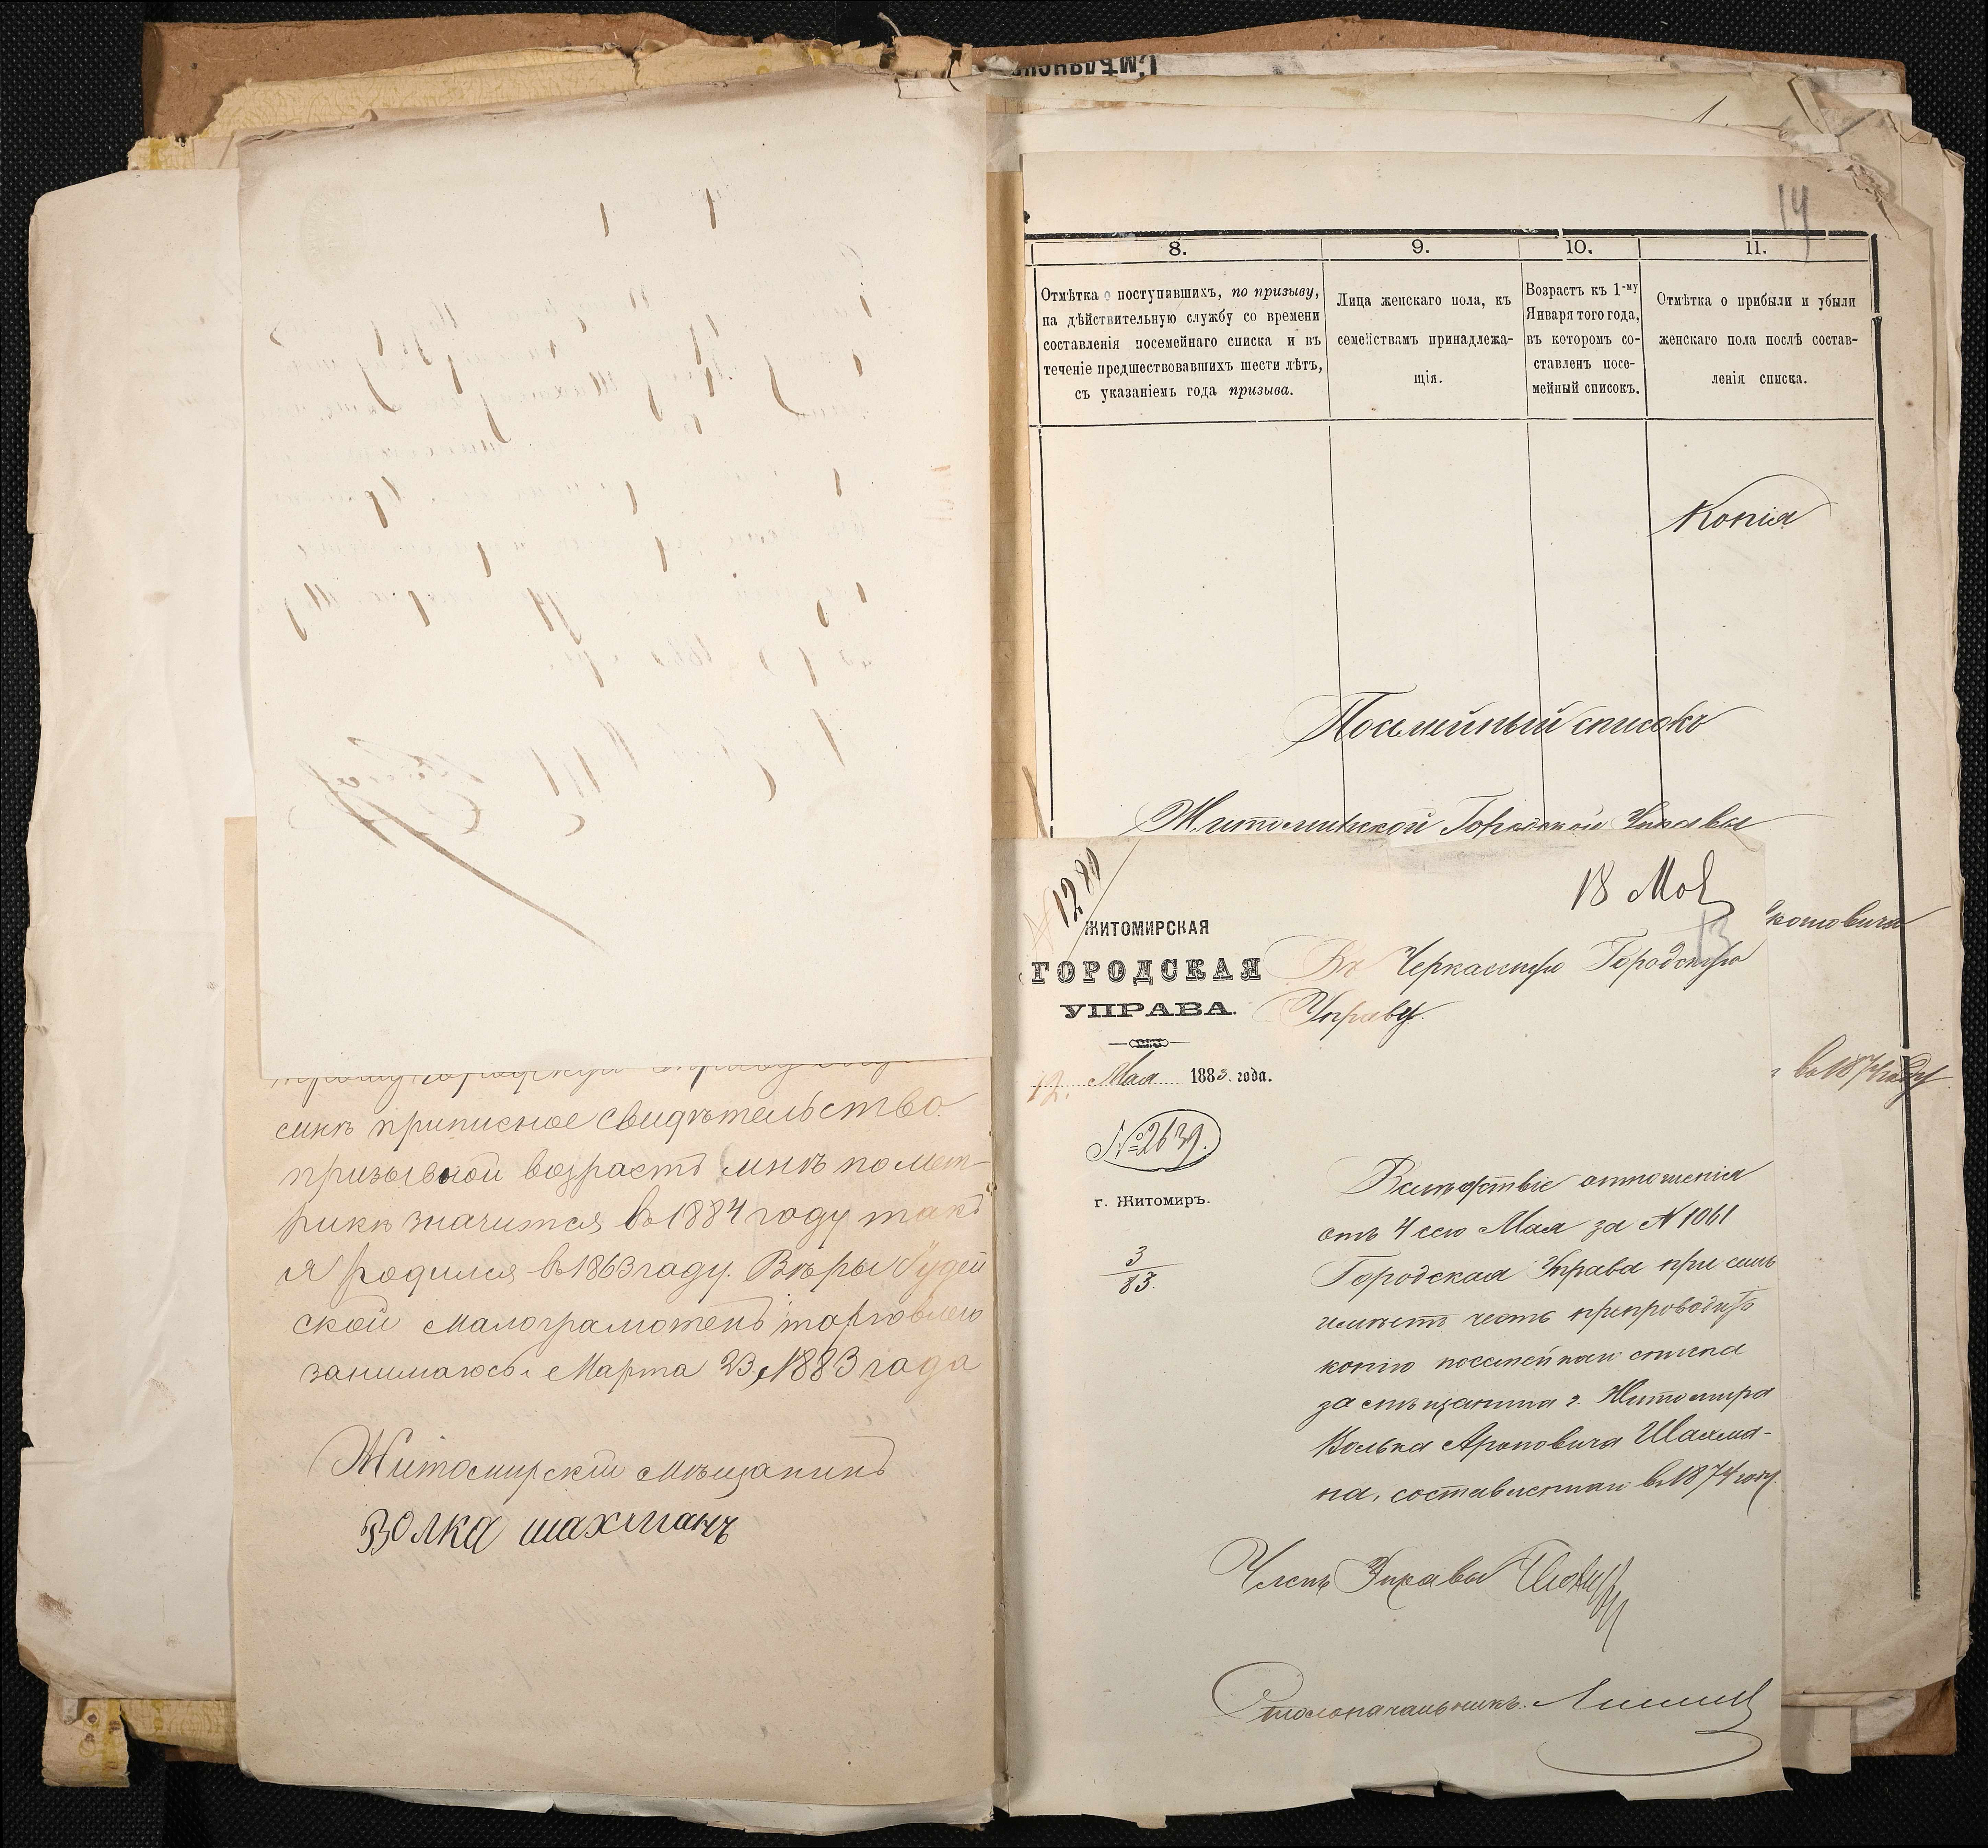 сикъ приписное свидѣтельство.
призывной возрастъ мнѣ по мет-
рикѣ значится въ 1884 году такъ
я родился въ 1863 году. Вѣры Іудей
ской малограмотенъ торговлею
занимаюсь. Марта 23, 1883 года
Житомирскій мѣщанинъ
Волка шахманъ
14
8.
9.
10.
11.
Отмѣтка о поступившихъ, по призыву,
на дѣйствительную службу со времени
составленія посемейнаго списка и въ
теченіе предшествовавшихъ шести лѣтъ,
съ указаніемъ года призыва.
Лица женскаго пола, къ
семействамъ принадлежа-
щія.
Возрастъ къ 1-му
Января того года,
въ которомъ со-
ставленъ посе-
мейный списокъ.
Отмѣтка о прибыли и убыли
женскаго пола послѣ состав-
ленія списка.
Копія
Посемейный списокъ
Житомирской Городской Управы
въ 1874 году
18 Мая
13
ЖИТОМИРСКАЯ
ГОРОДСКАЯ
УПРАВА.
12. Мая 1883. года.
№ 2639.
г. Житомиръ.
3
83.
Въ Черкасскую Городскую
Управу.
Вслѣдствіе отношенія
отъ 4 сего Мая за № 1061
Городская Управа при семъ
имѣетъ честь препроводить
копію посемейнаго списка
за мѣщанина г. Житомира
Волька Ароновича Шахма-
на, составленнаго въ 1874 году.
Членъ Управы
Столоначальникъ